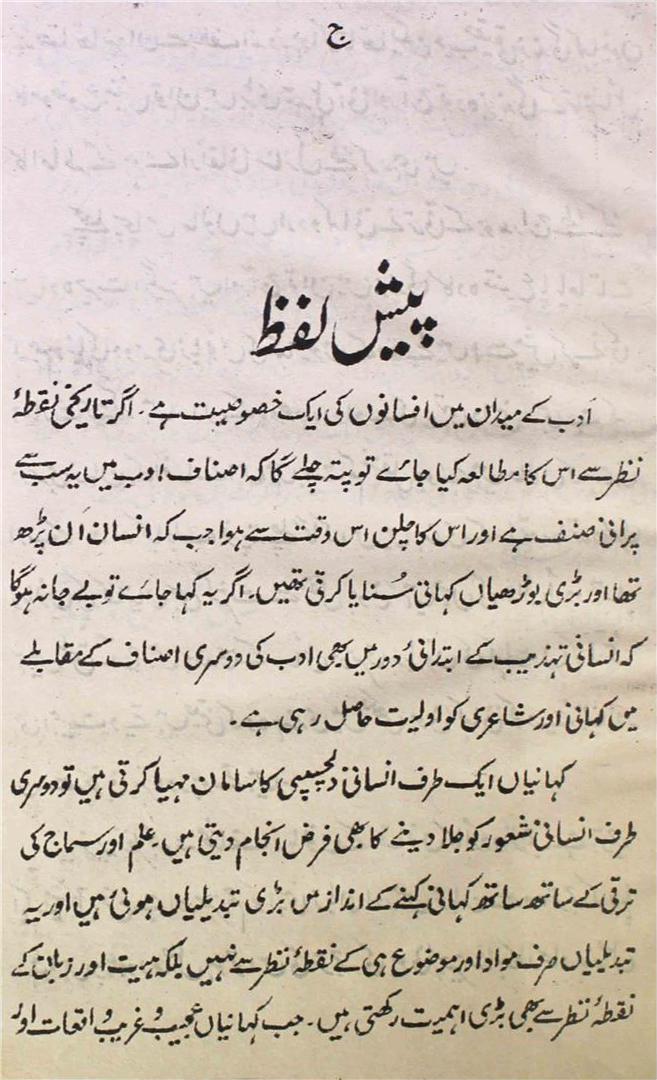 ج
پیش لفظ
اَدب کے میدان میں افسانوں کی ایک خصوصیت ہے۔ اگر تاریخی نقطۂ
نظر سے اس کا مطالعہ کیا جائے تو پتہ چلے گا کہ اصناف ادب میں یہ سب سے
پرانی صنف ہے اور اس کا چلن اس وقت سے ہوا جب کہ انسان اَن پڑھ
تھا اور بڑی بوڑھیاں کہانی سُنایا کرتی تھیں۔ اگر یہ کہا جائے تو بے جا نہ ہوگا
کہ انسانی تہذیب کے ابتدائی دور میں بھی ادب کی دوسری اصناف کے مقابلے
میں کہانی اور شاعری کو اولیت حاصل رہی ہے۔
کہانیاں ایک طرف انسانی دلچسپی کا سامان مہیا کرتی ہیں تو دوسری
طرف انسانی شعور کو جلا دینے کا بھی فرض انجام دیتی ہیں۔ علم اور سماج کی
ترقی کے ساتھ ساتھ کہانی کہنے کے انداز میں بڑی تبدیلیاں ہوئی ہیں اور یہ
تبدیلیاں صرف مواد اور موضوع ہی کے نقطۂ نظر سے نہیں بلکہ ہیئت اور زبان کے
نقطۂ نظر سے بھی بڑی اہمیت رکھتی ہیں۔ جب کہانیاں عجیب و غریب واقعات اور